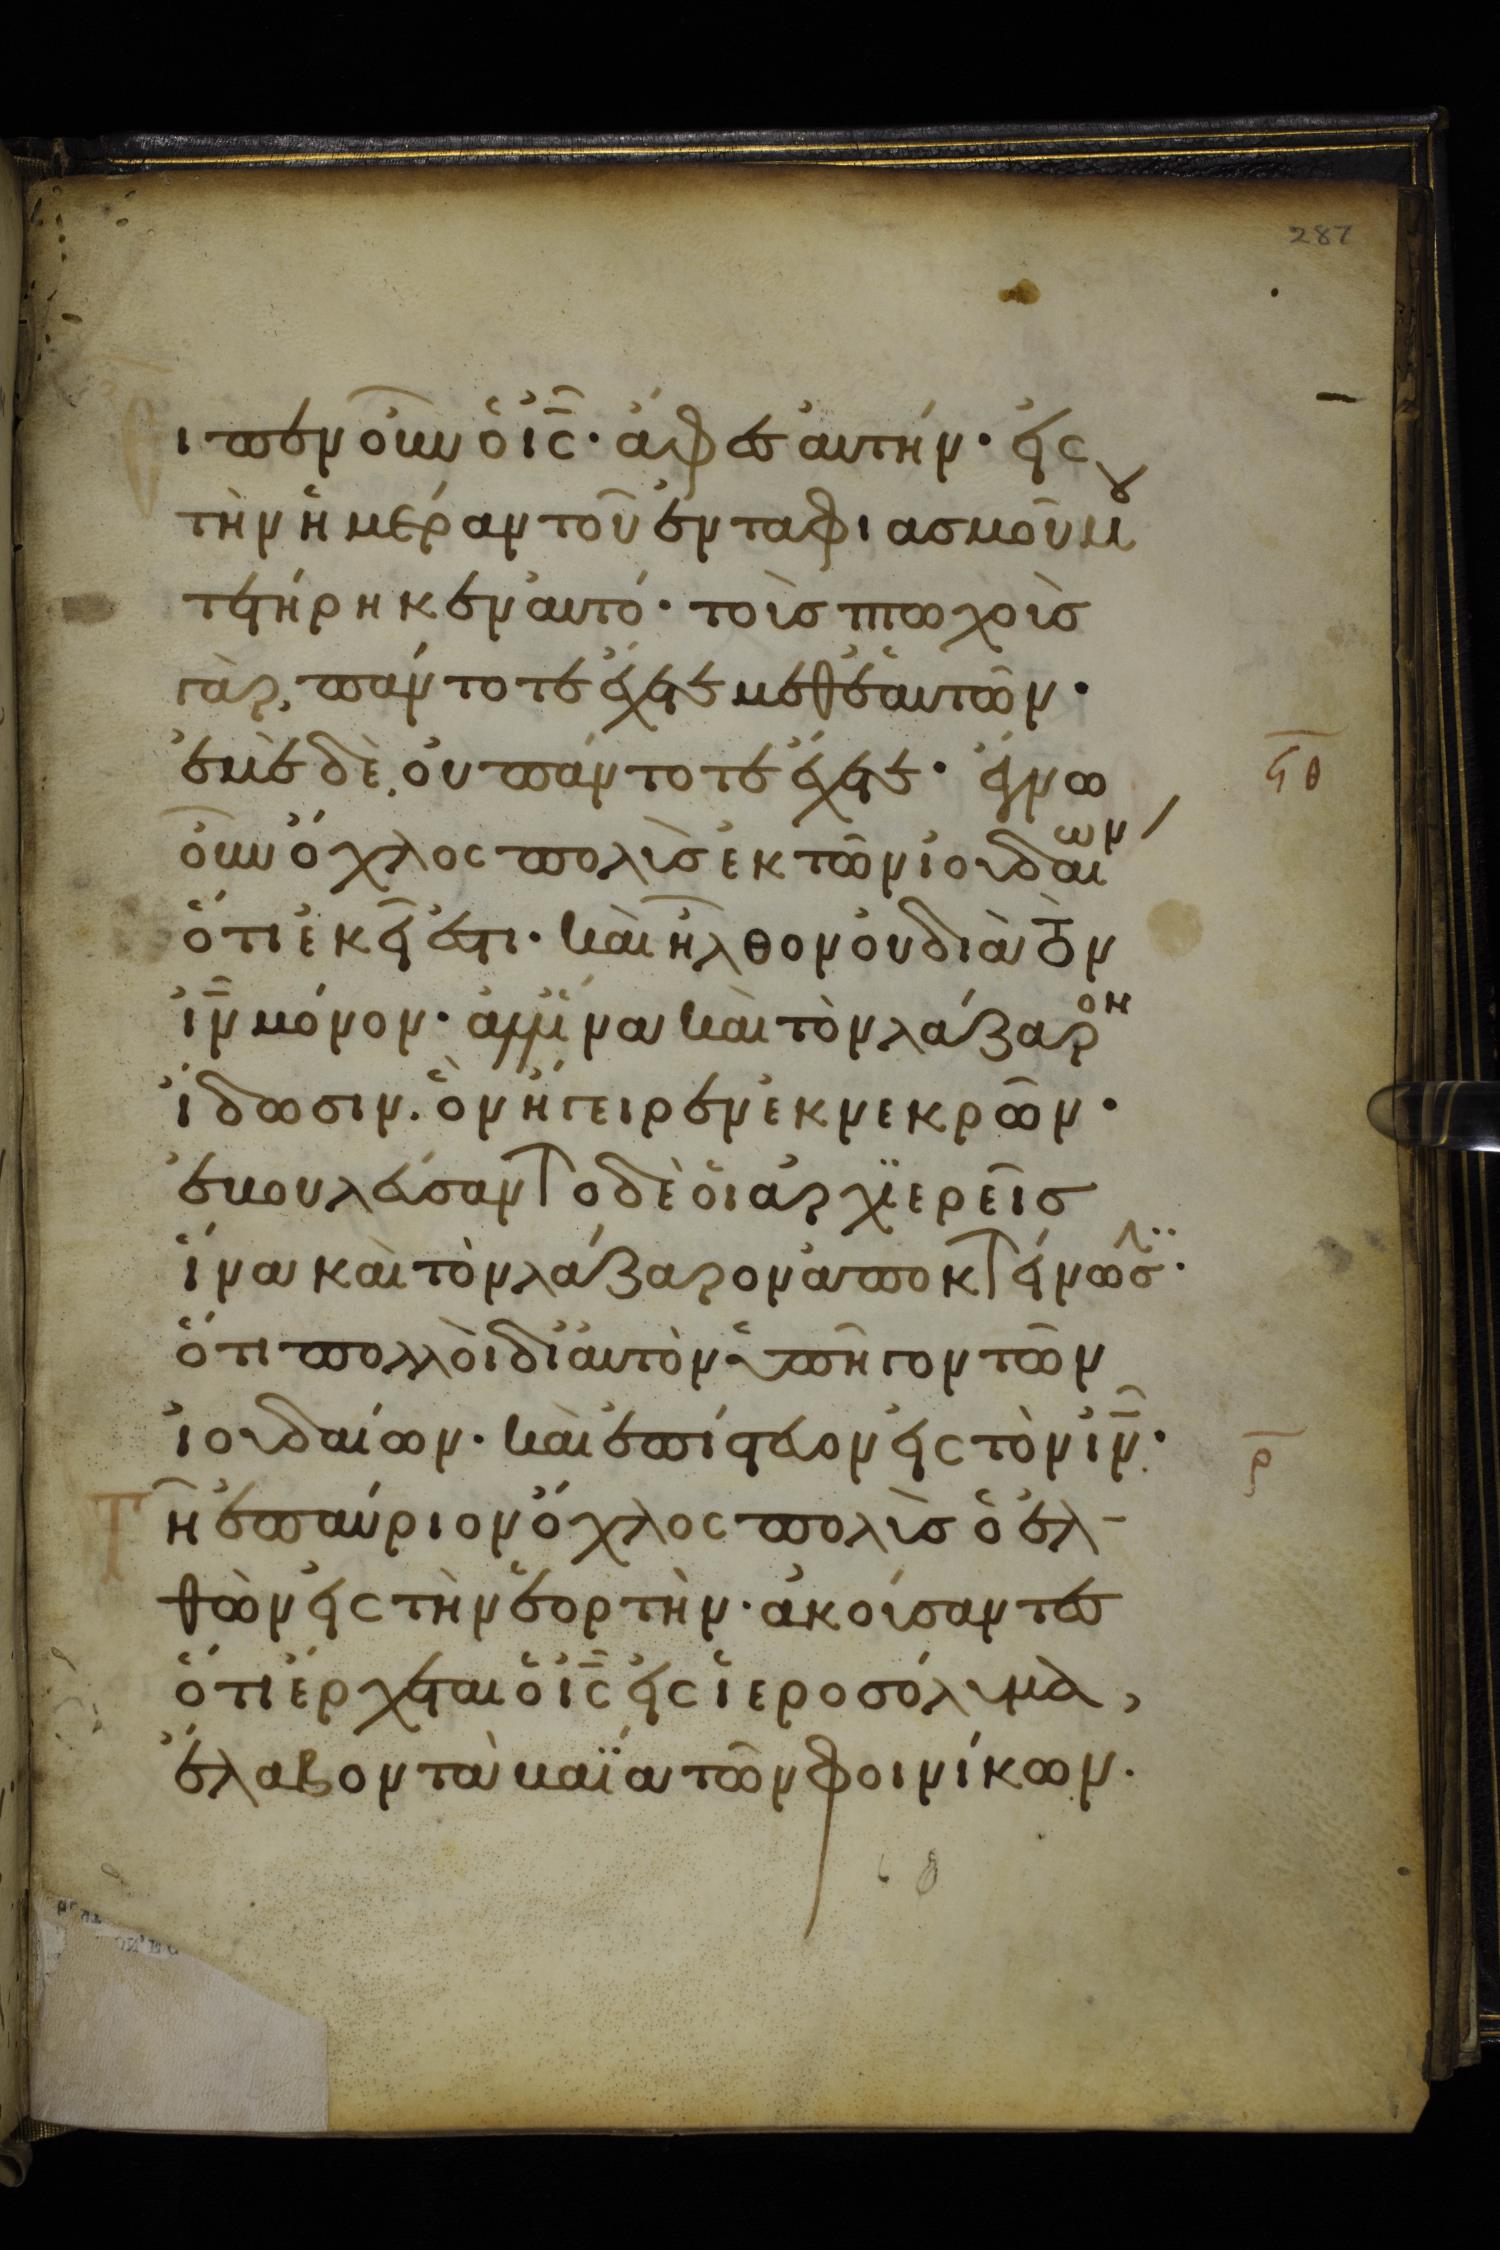 287
Εἶπεν οὖν ὁ ἰς̅· ἄφες αὐτήν· εἰς
τὴν ἡμέραν τοῦ ἐνταφιασμοῦ μου
τετήρηκεν αὐτό· τοὺς πτωχοὺς
γὰρ, πάντοτε ἔχετε μεθ' ἑαυτῶν·
ϟθ
ἐμὲ δὲ, οὐ πάντοτε ἔχετε· ἔγνω
οὖν ὄχλος πολὺς ἐκ τῶν ἰουδαίων
ὅτι ἐκεῖ ἐστι· καὶ ἦλθον οὐ διὰ τὸν
ἰν̅ μόνον· ἀλλ' ἵνα καὶ τὸν λάζαρον
ἴδωσιν. ὃν ἤγειρεν ἐκ νεκρῶν·
ἐβουλεύσαντο δὲ οἱ ἀρχιερεῖς
ἵνα καὶ τὸν λάζαρον ἀποκτείνωσιν·
ὅτι πολλοὶ δι' αὐτὸν ὑπῆγον τῶν
ἰουδαίων· καὶ ἐπίστευον εἰς τὸν ἰν̅·
ρ
Τῆ ἐπαύριον ὄχλος πολὺς ὁ ἐλ-
θὼν εἰς τὴν ἑορτὴν· ἀκούσαντες
ὅτι ἔρχεται ὁ ἰς̅ εἰς ἱεροσόλυμα,
ἔλαβον τὰ βαΐα τῶν φοινίκων.